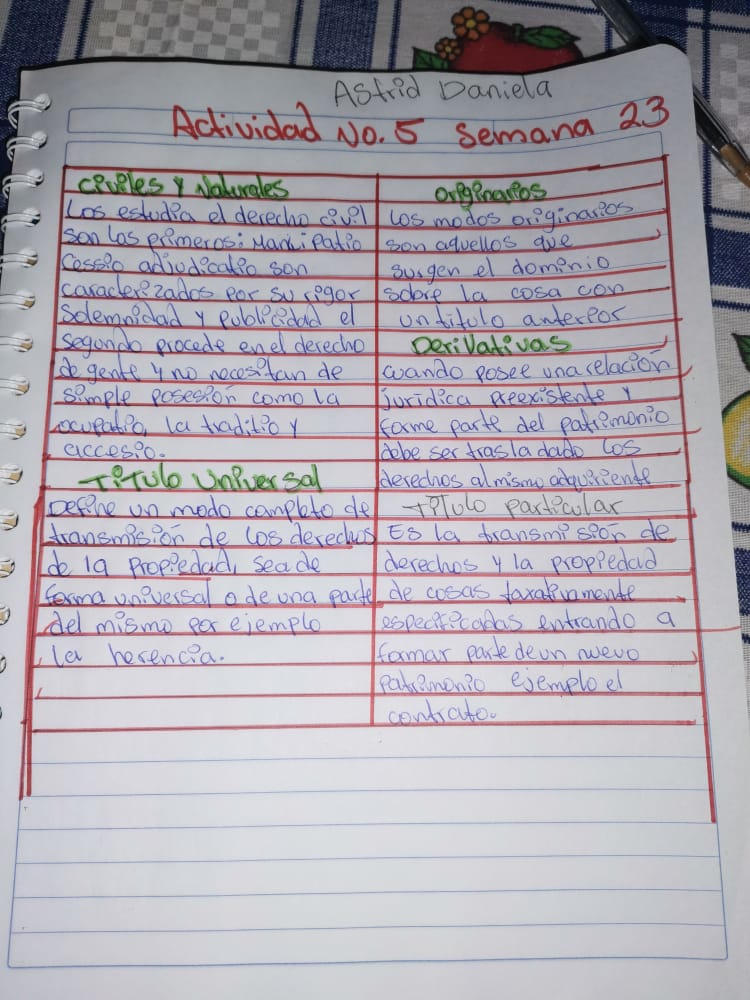 Astrid Daniela
Actividad No. 5 Semana 23
Civiles y Naturales
Los estudia el derecho civil
son los primeros: Mancipatio
Cessio adjudicatio son
caracterizados por su rigor
Solemnidad y publicidad el
segundo procede en el derecho
de gente y no necesitan de
simple posesión como la
ocupatio, la traditio y
accesio.
Titulo Universal
Define un modo completo de
transmisión de los derechos
de la propiedad, sea de
forma universal o de una parte
del mismo por ejemplo
la herencia.
Originarios
Los modos originarios
son aquellos que
surgen el dominio
sobre la cosa con
un titulo anterior
Derivativas
cuando posee una relación
jurídica preexistente y
forme parte del patrimonio
debe ser trasladado los
derechos al mismo adquiriente
Titulo particular
Es la transmisión de
derechos y la propiedad
de cosas taxativamente
especificadas entrando a
formar parte de un nuevo
patrimonio ejemplo el
contrato.